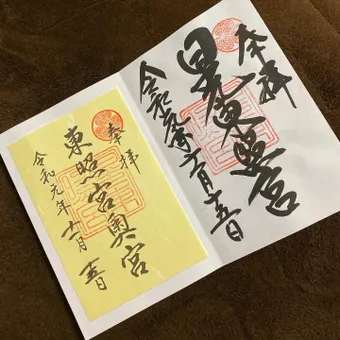 奉拝
日光東照宮
令和元年十一月十五日
奉拝
東照宮奥宮
令和元年十一月十五日